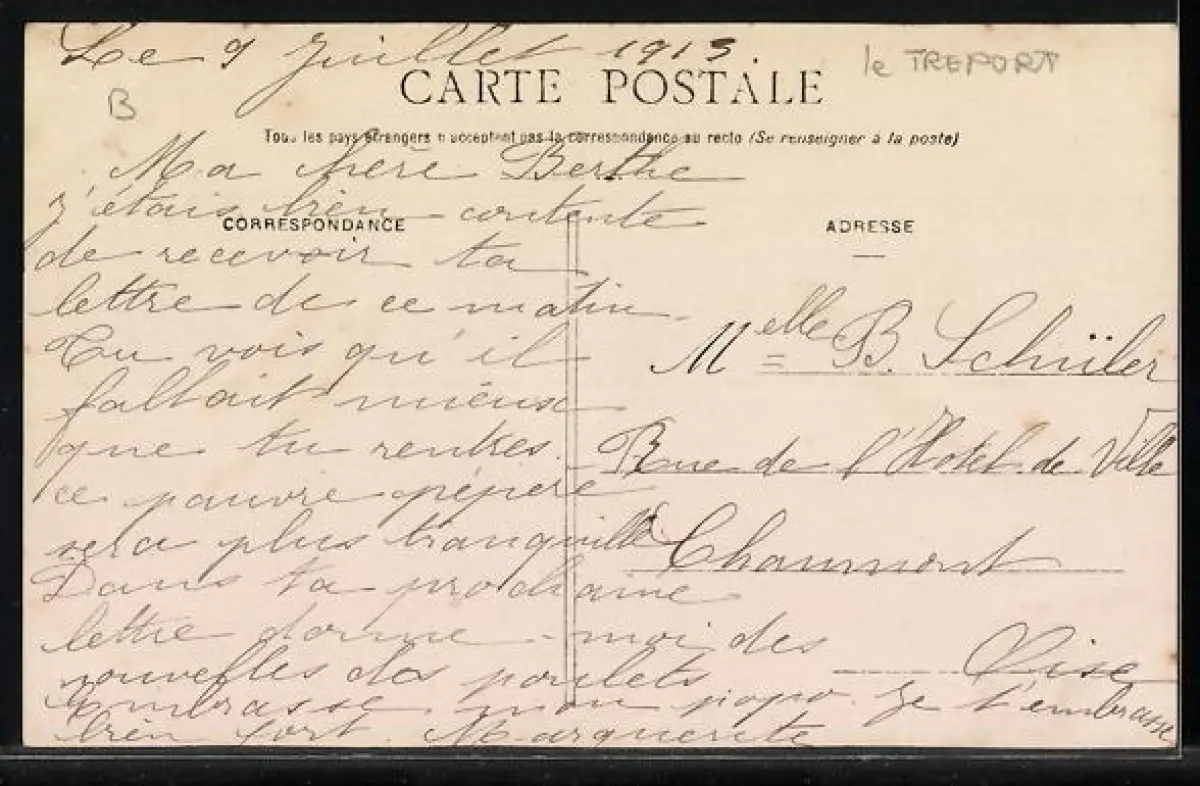 Le 9 Juillet 1913.
le TREPORT
CARTE POSTALE
B
Tous les pays étrangers n'acceptent pas la correspondance au recto (Se renseigner à la poste)
Ma chère Berthe
J'étais bien contente
CORRESPONDANCE
ADRESSE
de recevoir ta
lettre de ce matin.
Tu vois qu'il
fallait mieux
que tu rentres.
ce pauvre pépère
sera plus tranquille
Dans ta prochaine
lettre donne-moi des
nouvelles des poulets
Embrasse mon popo. Je t'embrasse
bien fort. Marguerite
Melle B. Schüler
Rue de l'Hotel de Ville
Chaumont
Oise